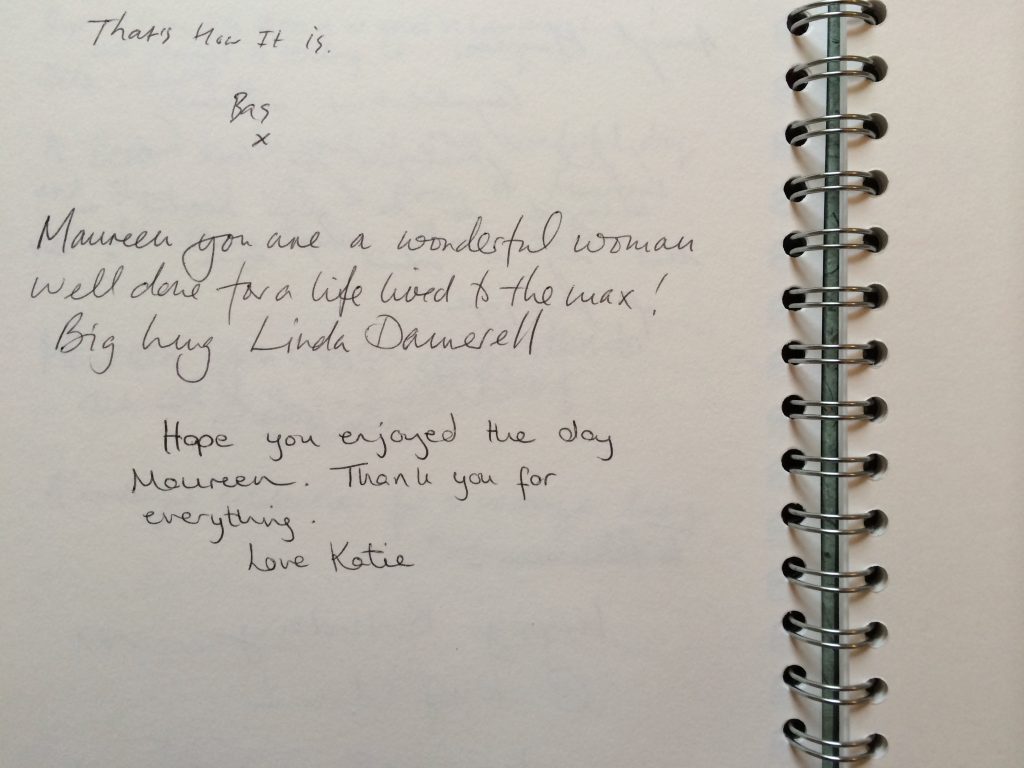 That's How It is.
Bas
x
Maureen you are a wonderful woman
well done for a life lived to the max!
Big hug Linda Damerell
Hope you enjoyed the day
Maureen. Thank you for
everything.
Love Katie